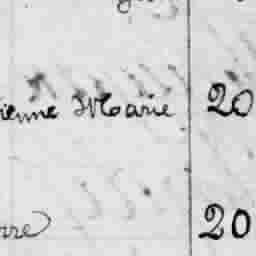 ienne Marie 20
rre 20